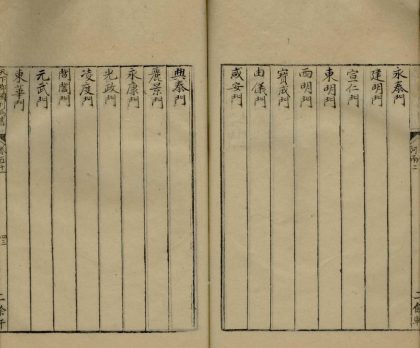 河南二
永泰門
建明門
宣仁門
東明門
西明門
賓成門
由儀門
咸安門
興泰門
麗景門
永康門
光政門
凌度門
閶闔門
元武門
東華門